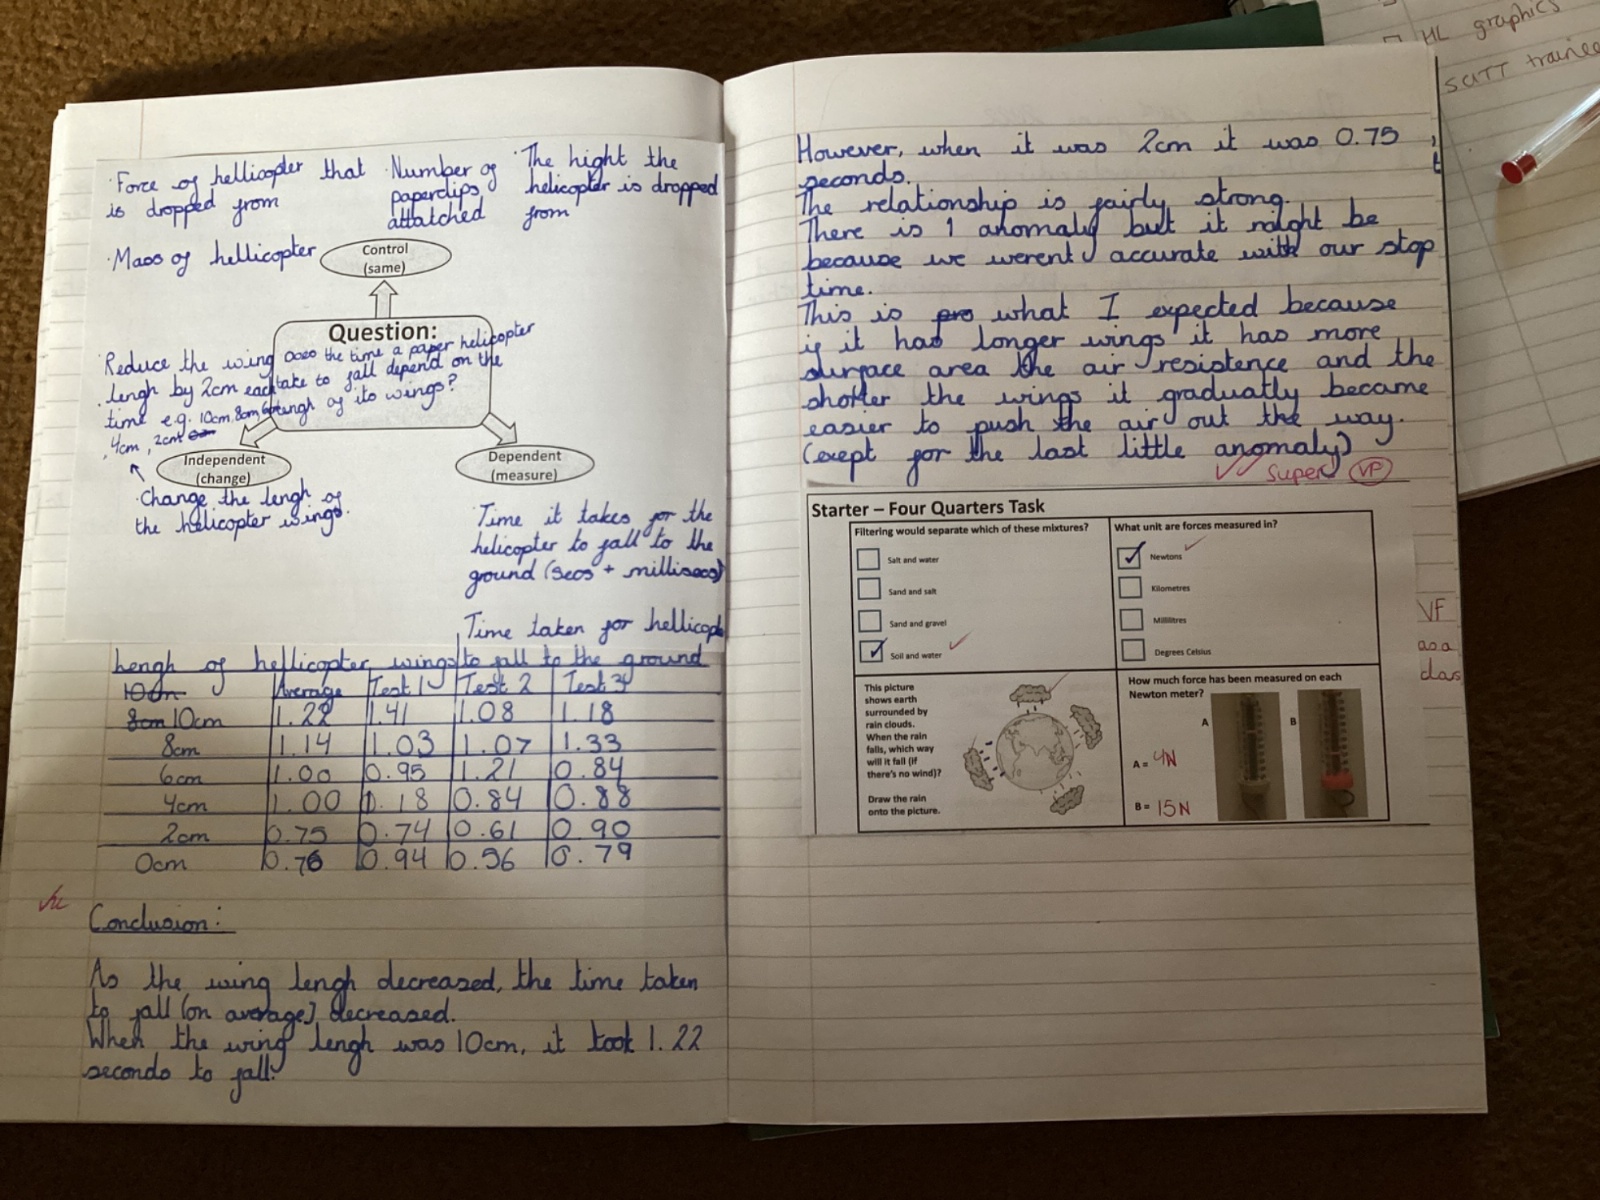 · Force of hellicopter that
is dropped from
· Number of
paperclips
attatched
· The hight the
helicopter is dropped
from
· Mass of hellicopter
Control
(same)
Question:
Does the time a paper helicopter
take to fall depend on the
lengh of its wings?
· Reduce the wing
lengh by 2cm each
time e.g. 10cm, 8cm, 6cm
, 4cm, 2cm
Independent
(change)
Dependent
(measure)
· Change the lengh of
the helicopter wings.
· Time it takes for the
helicopter to fall to the
ground (secs + millisecs)
Time taken for hellicop
Lengh of hellicopter wings to fall to the ground
10cm Average Test 1 Test 2 Test 3
8cm 10cm 1.22 1.41 1.08 1.18
8cm 1.14 1.03 1.07 1.33
6cm 1.00 0.95 1.21 0.84
4cm 1.00 1.18 0.84 0.88
2cm 0.75 0.74 0.61 0.90
0cm 0.76 0.94 0.56 0.79
Conclusion:
As the wing lengh decreased, the time taken
to fall (on average) decreased.
When the wing lengh was 10cm, it took 1.22
seconds to fall.
However, when it was 2cm it was 0.75
seconds.
The relationship is fairly strong.
There is 1 anomaly but it might be
because we werent accurate with our stop
time.
This is pro what I expected because
if it has longer wings it has more
surface area the air resistence and the
shorter the wings it gradually became
easier to push the air out the way.
(exept for the last little anomaly)
Super! VP
Starter – Four Quarters Task
Filtering would separate which of these mixtures?
Salt and water
Sand and salt
Sand and gravel
Soil and water
What unit are forces measured in?
Newtons
Kilometres
Millilitres
Degrees Celsius
This picture
shows earth
surrounded by
rain clouds.
When the rain
falls, which way
will it fall (if
there's no wind)?
Draw the rain
onto the picture.
How much force has been measured on each
Newton meter?
A
B
A = 4N
B = 15N
VF
HL graphics
trainee